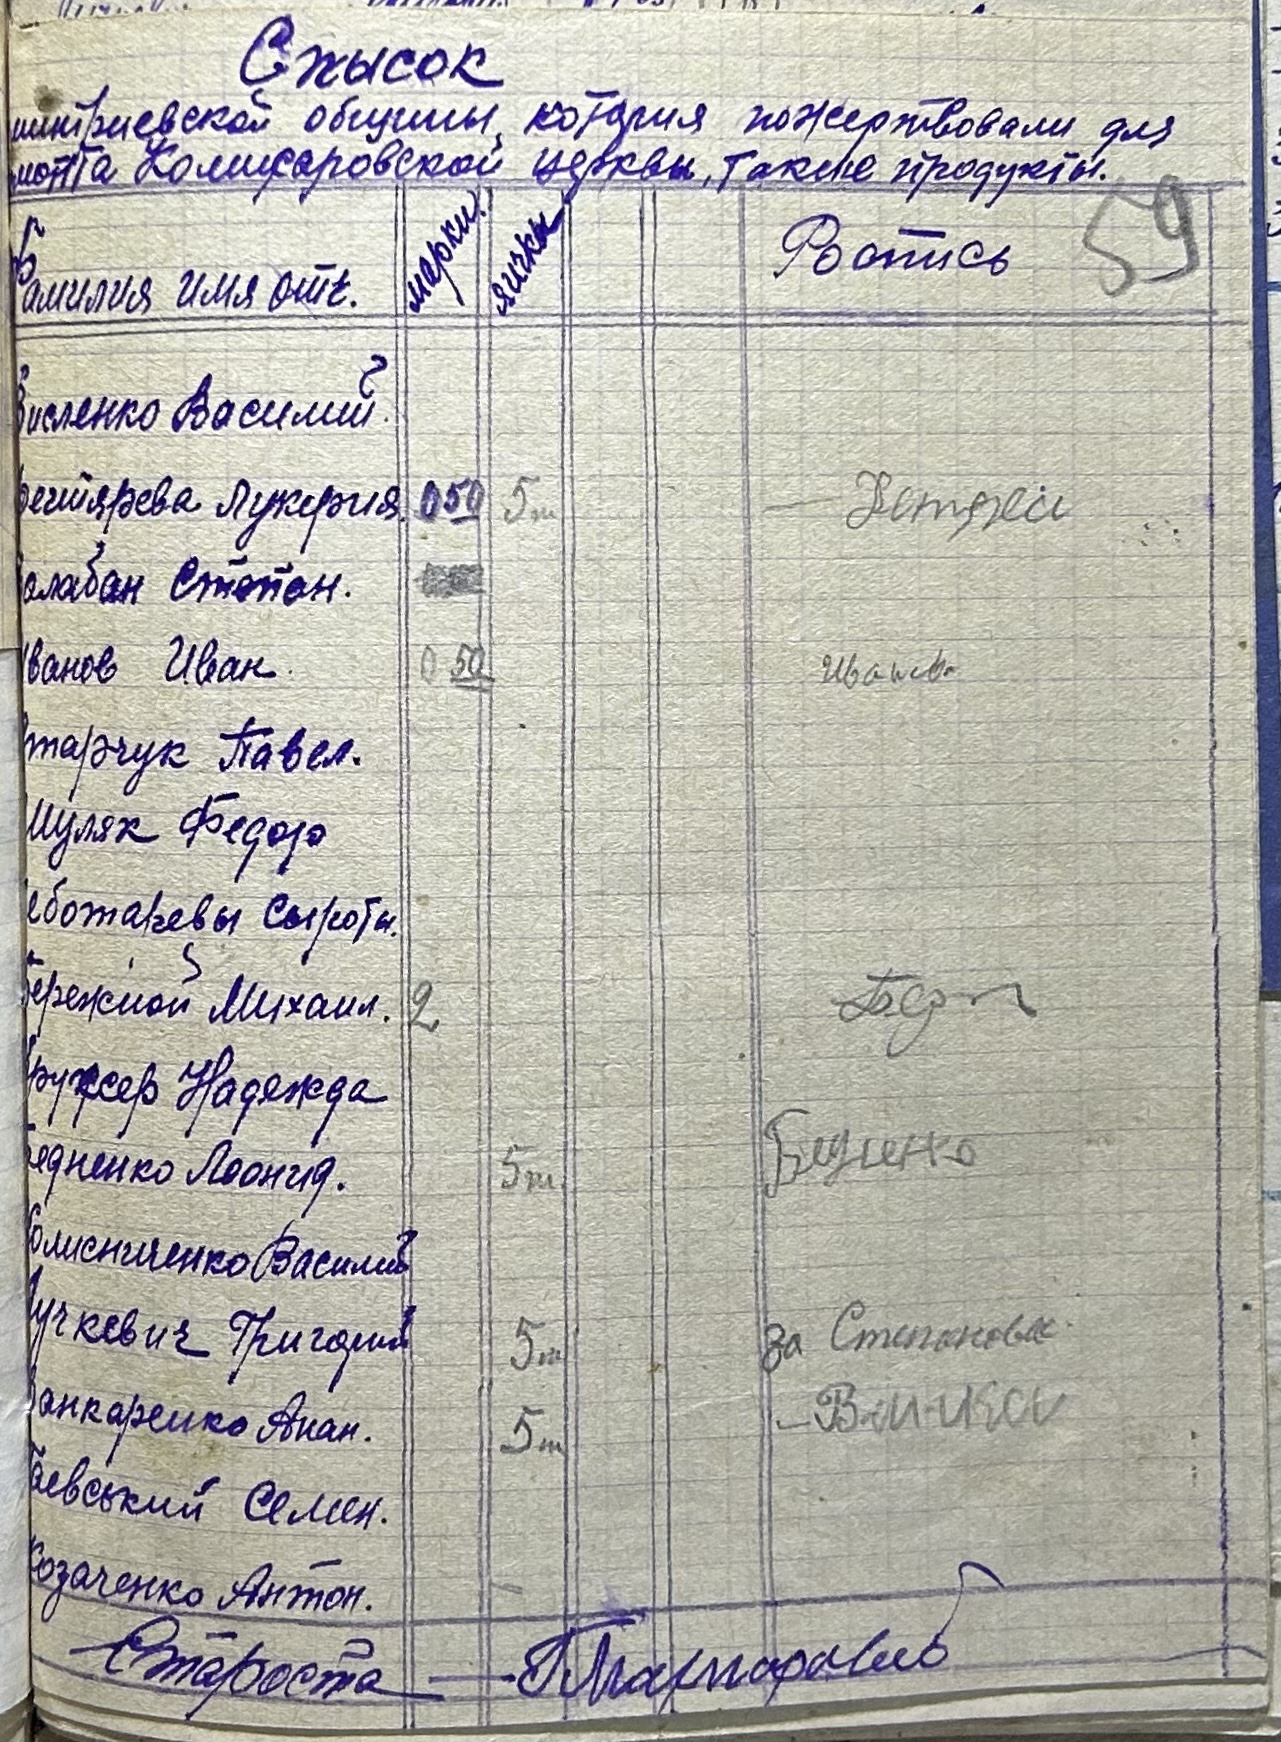 Спысок
митриевской общины, которыя пожертвовали для
монта Комисаровской церквы, такие продукты.
59
Фамилия имя отч. марки. яички Роспись
Висленко Василий.
Дегтярева Лукерия. 050 5 шт
Балабан Степан.
Иванов Иван. 0 50 Иванов
Старчук Павел.
Шулях Федор
еботаревы Сыроты.
Бережной Михаил. 2
Надежда
Бедненко Леонид. 5 шт. Бедненко
Колисниченко Василий
учкевич Григорий 5 шт за Степановы
анкаренко Анан. 5 шт
аевський Семен.
Козаченко Антон.
Староста